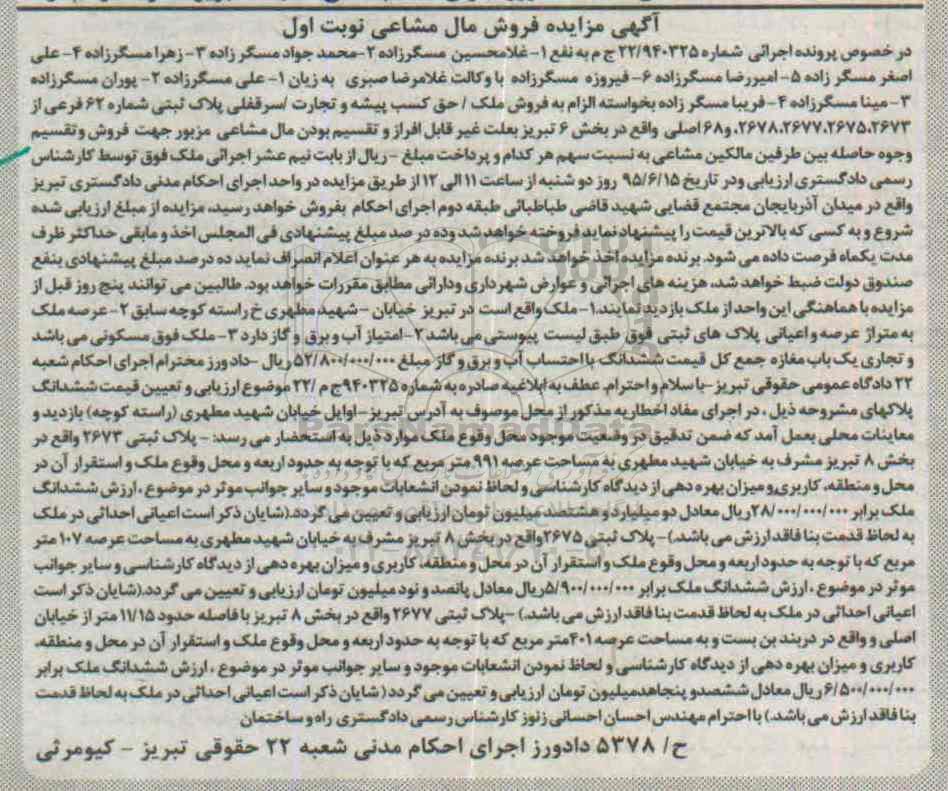 آگهی مزایده فروش مال مشاعی نوبت اول
در خصوص پرونده اجرائی شماره ۲۲/۹۴۰۳۲۵ ج م به نفع ۱- غلامحسین مسگرزاده ۲-محمد جواد مسگر زاده ۳- زهرا مسگرزاده ۴- علی
اصغر مسگر زاده ۵- امیررضا مسگرزاده ۶- فیروزه مسگرزاده با وکالت غلامرضا صبری به زیان ۱- علی مسگرزاده ۲- پوران مسگرزاده
۳- مینا مسگرزاده ۴- فریبا مسگر زاده بخواسته الزام به فروش ملک / حق کسب پیشه و تجارت /سرقفلی پلاک ثبتی شماره ۶۲ فرعی از
۲۶۷۸،۲۶۷۷،۲۶۷۵،۲۶۷۳، و۶۸ اصلی واقع در بخش ۶ تبریز بعلت غیر قابل افراز و تقسیم بودن مال مشاعی مزبور جهت فروش وتقسیم
وجوه حاصله بین طرفین مالکین مشاعی به نسبت سهم هر کدام و پرداخت مبلغ - ریال از بابت نیم عشر اجرائی ملک فوق توسط کارشناس
رسمی دادگستری ارزیابی ودر تاریخ ۹۵/۶/۱۵ روز دو شنبه از ساعت ۱۱ الی ۱۲ از طریق مزایده در واحد اجرای احکام مدنی دادگستری تبریز
واقع در میدان آذربایجان مجتمع قضایی شهید قاضی طباطبائی طبقه دوم اجرای احکام بفروش خواهد رسید، مزایده از مبلغ ارزیابی شده
شروع و به کسی که بالاترین قیمت را پیشنهاد نماید فروخته خواهد شد وده در صد مبلغ پیشنهادی فی المجلس اخذ و مابقی حداکثر ظرف
مدت یکماه فرصت داده می شود. برنده مزایده اخذ خواهد شد برنده مزایده به هر عنوان اعلام انصراف نماید ده درصد مبلغ پیشنهادی بنفع
صندوق دولت ضبط خواهد شد، هزینه های اجرائی و عوارض شهرداری ودارائی مطابق مقررات خواهد بود. طالبین می توانند پنج روز قبل از
مزایده با هماهنگی این واحد از ملک بازدید نمایند.۱- ملک واقع است در تبریز خیابان -شهید مطهری خ راسته کوچه سابق ۲- عرصه ملک
به متراژ عرصه واعیانی پلاک های ثبتی فوق طبق لیست پیوستی می باشد ۲- امتیاز آب و برق و گاز دارد ۳- ملک فوق مسکونی می باشد
و تجاری یک باب مغازه جمع کل قیمت ششدانگ با احتساب آب و برق و گاز مبلغ ۵۲/۸۰۰/۰۰۰/۰۰۰ ریال -داد ورز محترم اجرای احکام شعبه
۲۲ دادگاه عمومی حقوقی تبریز -با سلام و احترام. عطف به ابلاغیه صادره به شماره ۹۴۰۳۲۵ج م /۲۲ موضوع ارزیابی و تعیین قیمت ششدانگ
پلاکهای مشروحه ذیل ، در اجرای مفاد اخطاریه مذکور از محل موصوف به آدرس تبریز - اوایل خیابان شهید مطهری (راسته کوچه) بازدید و
معاینات محلی بعمل آمد که ضمن تدقیق در وضعیت موجود محل وقوع ملک موارد ذیل به استحضار می رسد: - پلاک ثبتی ۲۶۷۳ واقع در
بخش ۸ تبریز مشرف به خیابان شهید مطهری به مساحت عرصه ۹۹۱ متر مربع که با توجه به حدود اربعه و محل وقوع ملک و استقرار آن در
محل و منطقه، کاربری و میزان بهره دهی از دیدگاه کارشناسی و لحاظ نمودن انشعابات موجود و سایر جوانب موثر در موضوع ، ارزش ششدانگ
ملک برابر ۲۸/۰۰۰/۰۰۰/۰۰۰ ریال معادل دو میلیارد و هشتصد میلیون تومان ارزیابی و تعیین می گردد.(شایان ذکر است اعیانی احداثی در ملک
به لحاظ قدمت بنا فاقد ارزش می باشد.)- پلاک ثبتی ۲۶۷۵ واقع در بخش ۸ تبریز مشرف به خیابان شهید مطهری به مساحت عرصه ۱۰۷ متر
مربع که با توجه به حدود اربعه و محل وقوع ملک و استقرار آن در محل و منطقه، کاربری و میزان بهره دهی از دیدگاه کارشناسی و سایر جوانب
موثر در موضوع ، ارزش ششدانگ ملک برابر ۵/۹۰۰/۰۰۰/۰۰۰ ریال معادل پانصد و نود میلیون تومان ارزیابی و تعیین می گردد.(شایان ذکر است
اعیانی احداثی در ملک به لحاظ قدمت بنا فاقد ارزش می باشد.) -پلاک ثبتی ۲۶۷۷ واقع در بخش ۸ تبریز با فاصله حدود ۱۱/۱۵ متر از خیابان
اصلی و واقع در دربند بن بست و به مساحت عرصه ۴۰۱ متر مربع که با توجه به حدود اربعه و محل وقوع ملک و استقرار آن در محل و منطقه،
کاربری و میزان بهره دهی از دیدگاه کارشناسی و لحاظ نمودن انشعابات موجود و سایر جوانب موثر در موضوع ، ارزش ششدانگ ملک برابر
۶/۵۰۰/۰۰۰/۰۰۰ ریال معادل ششصدو پنجاهدمیلیون تومان ارزیابی و تعیین می گردد ( شایان ذکر است اعیانی احداثی در ملک به لحاظ قدمت
بنا فاقد ارزش می باشد.) با احترام مهندس احسان احسانی زنوز کارشناس رسمی دادگستری راه و ساختمان
ح/ ۵۳۷۸ دادورز اجرای احکام مدنی شعبه ۲۲ حقوقی تبریز - کیومرثی
ParsNamadData